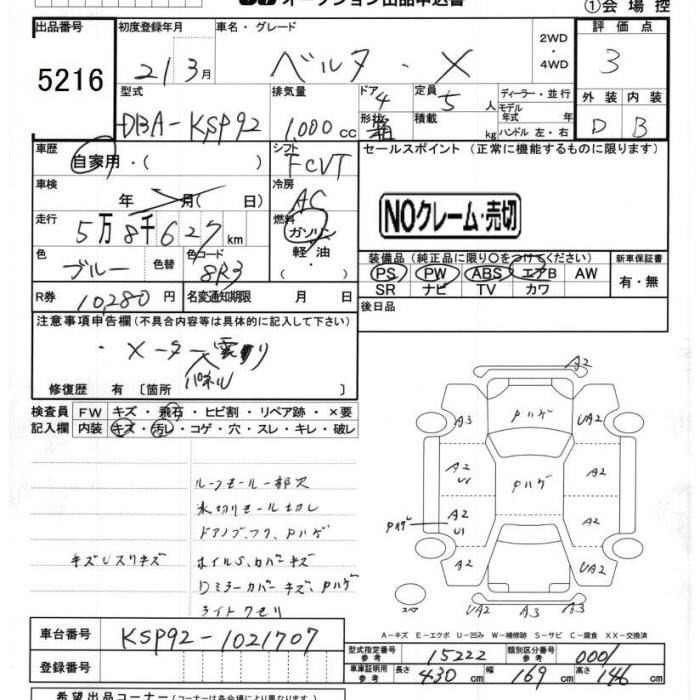 オークション出品申込書 ①会場控
出品番号 初度登録年月 車名・グレード 2WD ・4WD 評価点
5216 21 3月 ベルタ・X 3
型式 排気量 ドア 4 定員 5人 ディーラー・並行 外装 内装
DBA-KSP92 1,000cc 形状 積載 kg モデル年式 年 ハンドル 左・右 D B
車歴 自家用・( ) シフト FCVT セールスポイント (正常に機能するものに限ります)
車検 年 月( 日) 冷房 AC
NOクレーム・売切
走行 5万8千627km 燃料 ガソリン・軽油・( )
色 ブルー 色替 色コード 8R3 装備品 (純正品に限り○をつけてください) 新車保証書
PS PW ABS エアB AW 有・無
SR ナビ TV カワ
R券 10,280円 名変通知期限 月 日 後日品
注意事項申告欄 (不具合内容等は具体的に記入して下さい)
・メーターパネル雲り
修復歴 有 [箇所 ]
検査員 FW キズ・飛石・ヒビ割・リペア跡・×要
記入欄 内装 キズ・汚レ・コゲ・穴・スレ・キレ・破レ
A2
A3 Pハゲ UA2
A2 U1 Pハゲ A2
Pハゲ A2 U1 A2
A2 UA2
スペア UA2 A3 A3
ルーフモール一部欠
水切りモール
ドアノブ、フタ、Pハゲ
キズUスリキズ ホイルS、カバーキズ
Dミラーカバーキズ、Pハゲ
ライトクモリ
A-キズ E-エクボ U-凹み W-補修跡 S-サビ C-腐食 XX-交換済
車台番号 KSP92-1021707
型式指定番号 参考 15222 類別区分番号 参考 0001
登録番号
車庫証明用 参考 長さ 430cm 幅 169cm 高さ 146cm
希望出品コーナー (コーナーは各会場により異なります)